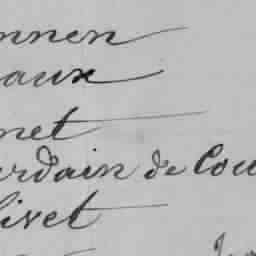 nnen
aux
net
urdain de Cou
livet